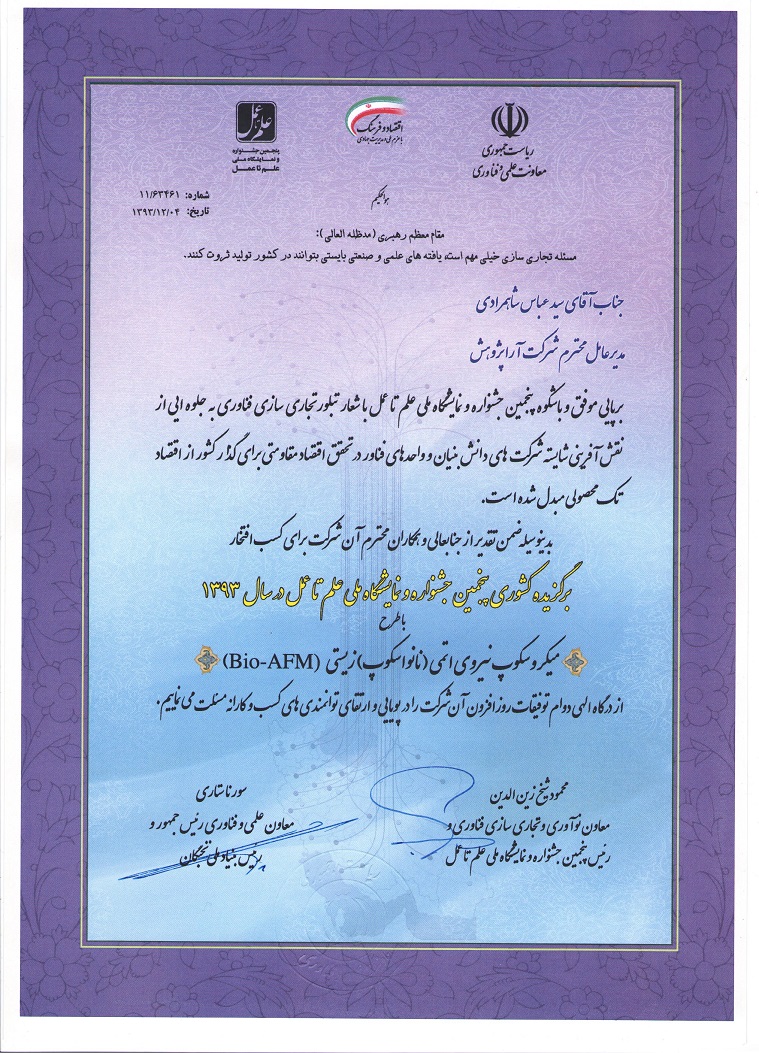 ریاست جمهوری
معاونت علمی و فناوری
اقتصاد و فرهنگ
با عزم ملی و مدیریت جهادی
علم تا عمل
پنجمین جشنواره
و نمایشگاه ملی
علم تا عمل
شماره: ۱۱/۶۳۴۶۱
تاریخ: ۱۳۹۳/۱۲/۰۴
هوالحکیم
مقام معظم رهبری (مدظله العالی):
مسئله تجاری سازی خیلی مهم است، یافته های علمی و صنعتی بایستی بتوانند در کشور تولید ثروت کنند.
جناب آقای سید عباس شاهمرادی
مدیرعامل محترم شرکت آرا پژوهش
برپایی موفق و باشکوه پنجمین جشنواره و نمایشگاه ملی علم تا عمل با شعار تبلور تجاری سازی فناوری به جلوه ایی از
نقش آفرینی شایسته شرکت های دانش بنیان و واحدهای فناور در تحقق اقتصاد مقاومتی برای گذار کشور از اقتصاد
تک محصولی مبدل شده است.
بدینوسیله ضمن تقدیر از جنابعالی و همکاران محترم آن شرکت برای کسب افتخار
برگزیده کشوری پنجمین جشنواره و نمایشگاه ملی علم تا عمل در سال ۱۳۹۳
با طرح
میکروسکوپ نیروی اتمی (نانواسکوپ) زیستی (Bio-AFM)
از درگاه الهی دوام توفیقات روزافزون آن شرکت را در پویایی و ارتقای توانمندی های کسب و کارانه مسئلت می نماییم.
محمود شیخ زین الدین
معاون نوآوری و تجاری سازی فناوری و
رئیس پنجمین جشنواره و نمایشگاه ملی علم تا عمل
سورنا ستاری
معاون علمی و فناوری رئیس جمهور و
رئیس بنیاد ملی نخبگان